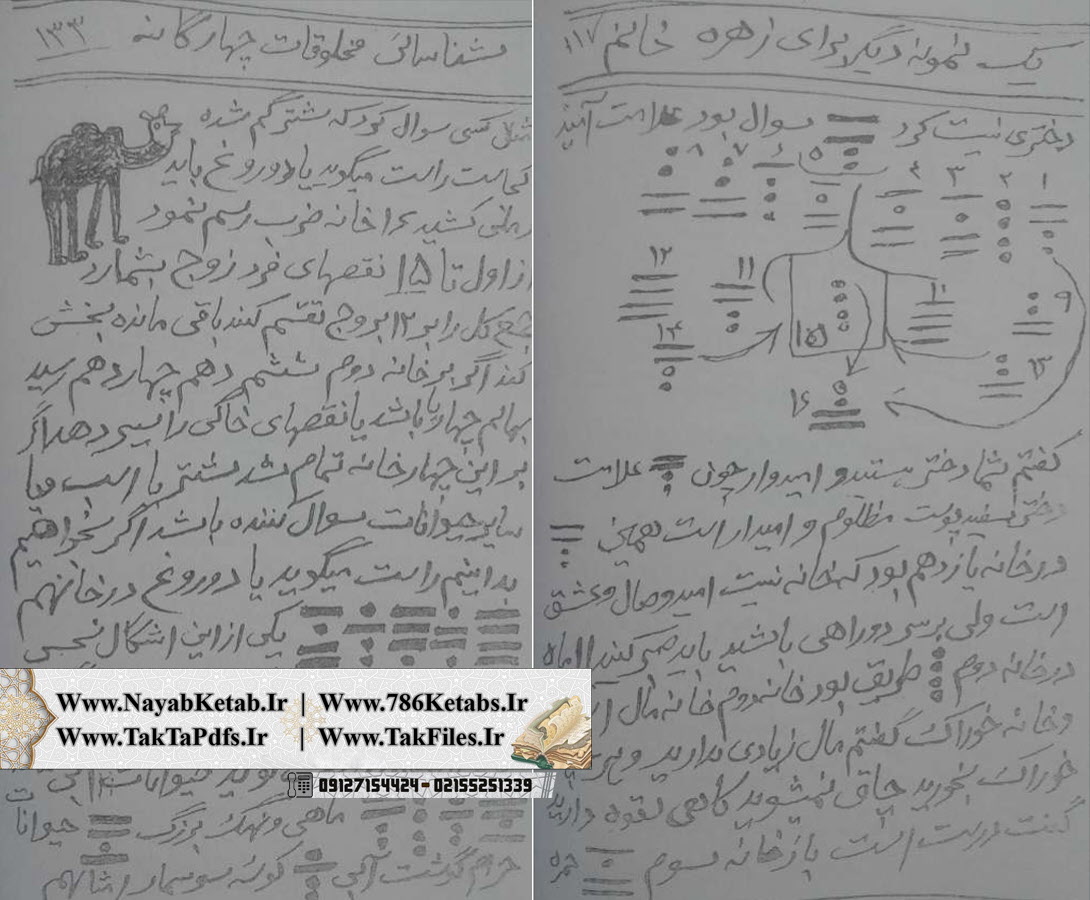 یک نمونه دیگر برای زهره خانم ۱۱۷
دختری نیت کرد سوال بود علامت
۱ ۲ ۳ ۴ ۵ ۶ ۷ ۸
۹ ۱۰ ۱۱ ۱۲
۱۳ ۱۴ ۱۵
۱۶
گفتم شما دختر هستید و امیدوار چون علامت
دختر سفید پوست مظلوم و امیدوار است
در خانه یازدهم بود که خانه نیت امید وصال و عشق
است ولی بر سر دوراهی باشید باید صبر کنید ۱۱ ماه
در خانه دوم طریق بود خانه دوم خانه مال
و خانه خوراک گفتم مال زیادی ندارید و هر
خوراک بخورید چاق نمیشوید
گفت درست است باز خانه سوم حمره
شناسائی مخلوقات چهارگانه ۱۳۳
کسی سوال کرد که شتر گم شده
کجاست راست میگوید یا دوروغ باید
رملی کشید خانه ضرب رسم نمود
از اول تا ۱۵ نقصهای فرد زوج بشمارد
جمع کل را بر ۱۲ بروج تقسیم کند باقی مانده بخش
کند اگر بر خانه دوم ششم دهم چهاردهم رسید
بهائم چهارپا باشد یا نقصهای خاکی را سیر دهد اگر
بر این چهار خانه تمام شد شتر یا اسب و یا
سایر حیوانات سوال کننده باشد اگر بخواهیم
بدانیم راست میگوید یا دوروغ در خانه نهم
یکی از این اشکال نحس
ماهی و نهنگ بزرگ حیوانات
حرام گوشت آبی کوسه سوسمار
Www.NayabKetab.Ir | Www.786Ketabs.Ir
Www.TakTaPdfs.Ir | Www.TakFiles.Ir
09127154424 - 02155251339